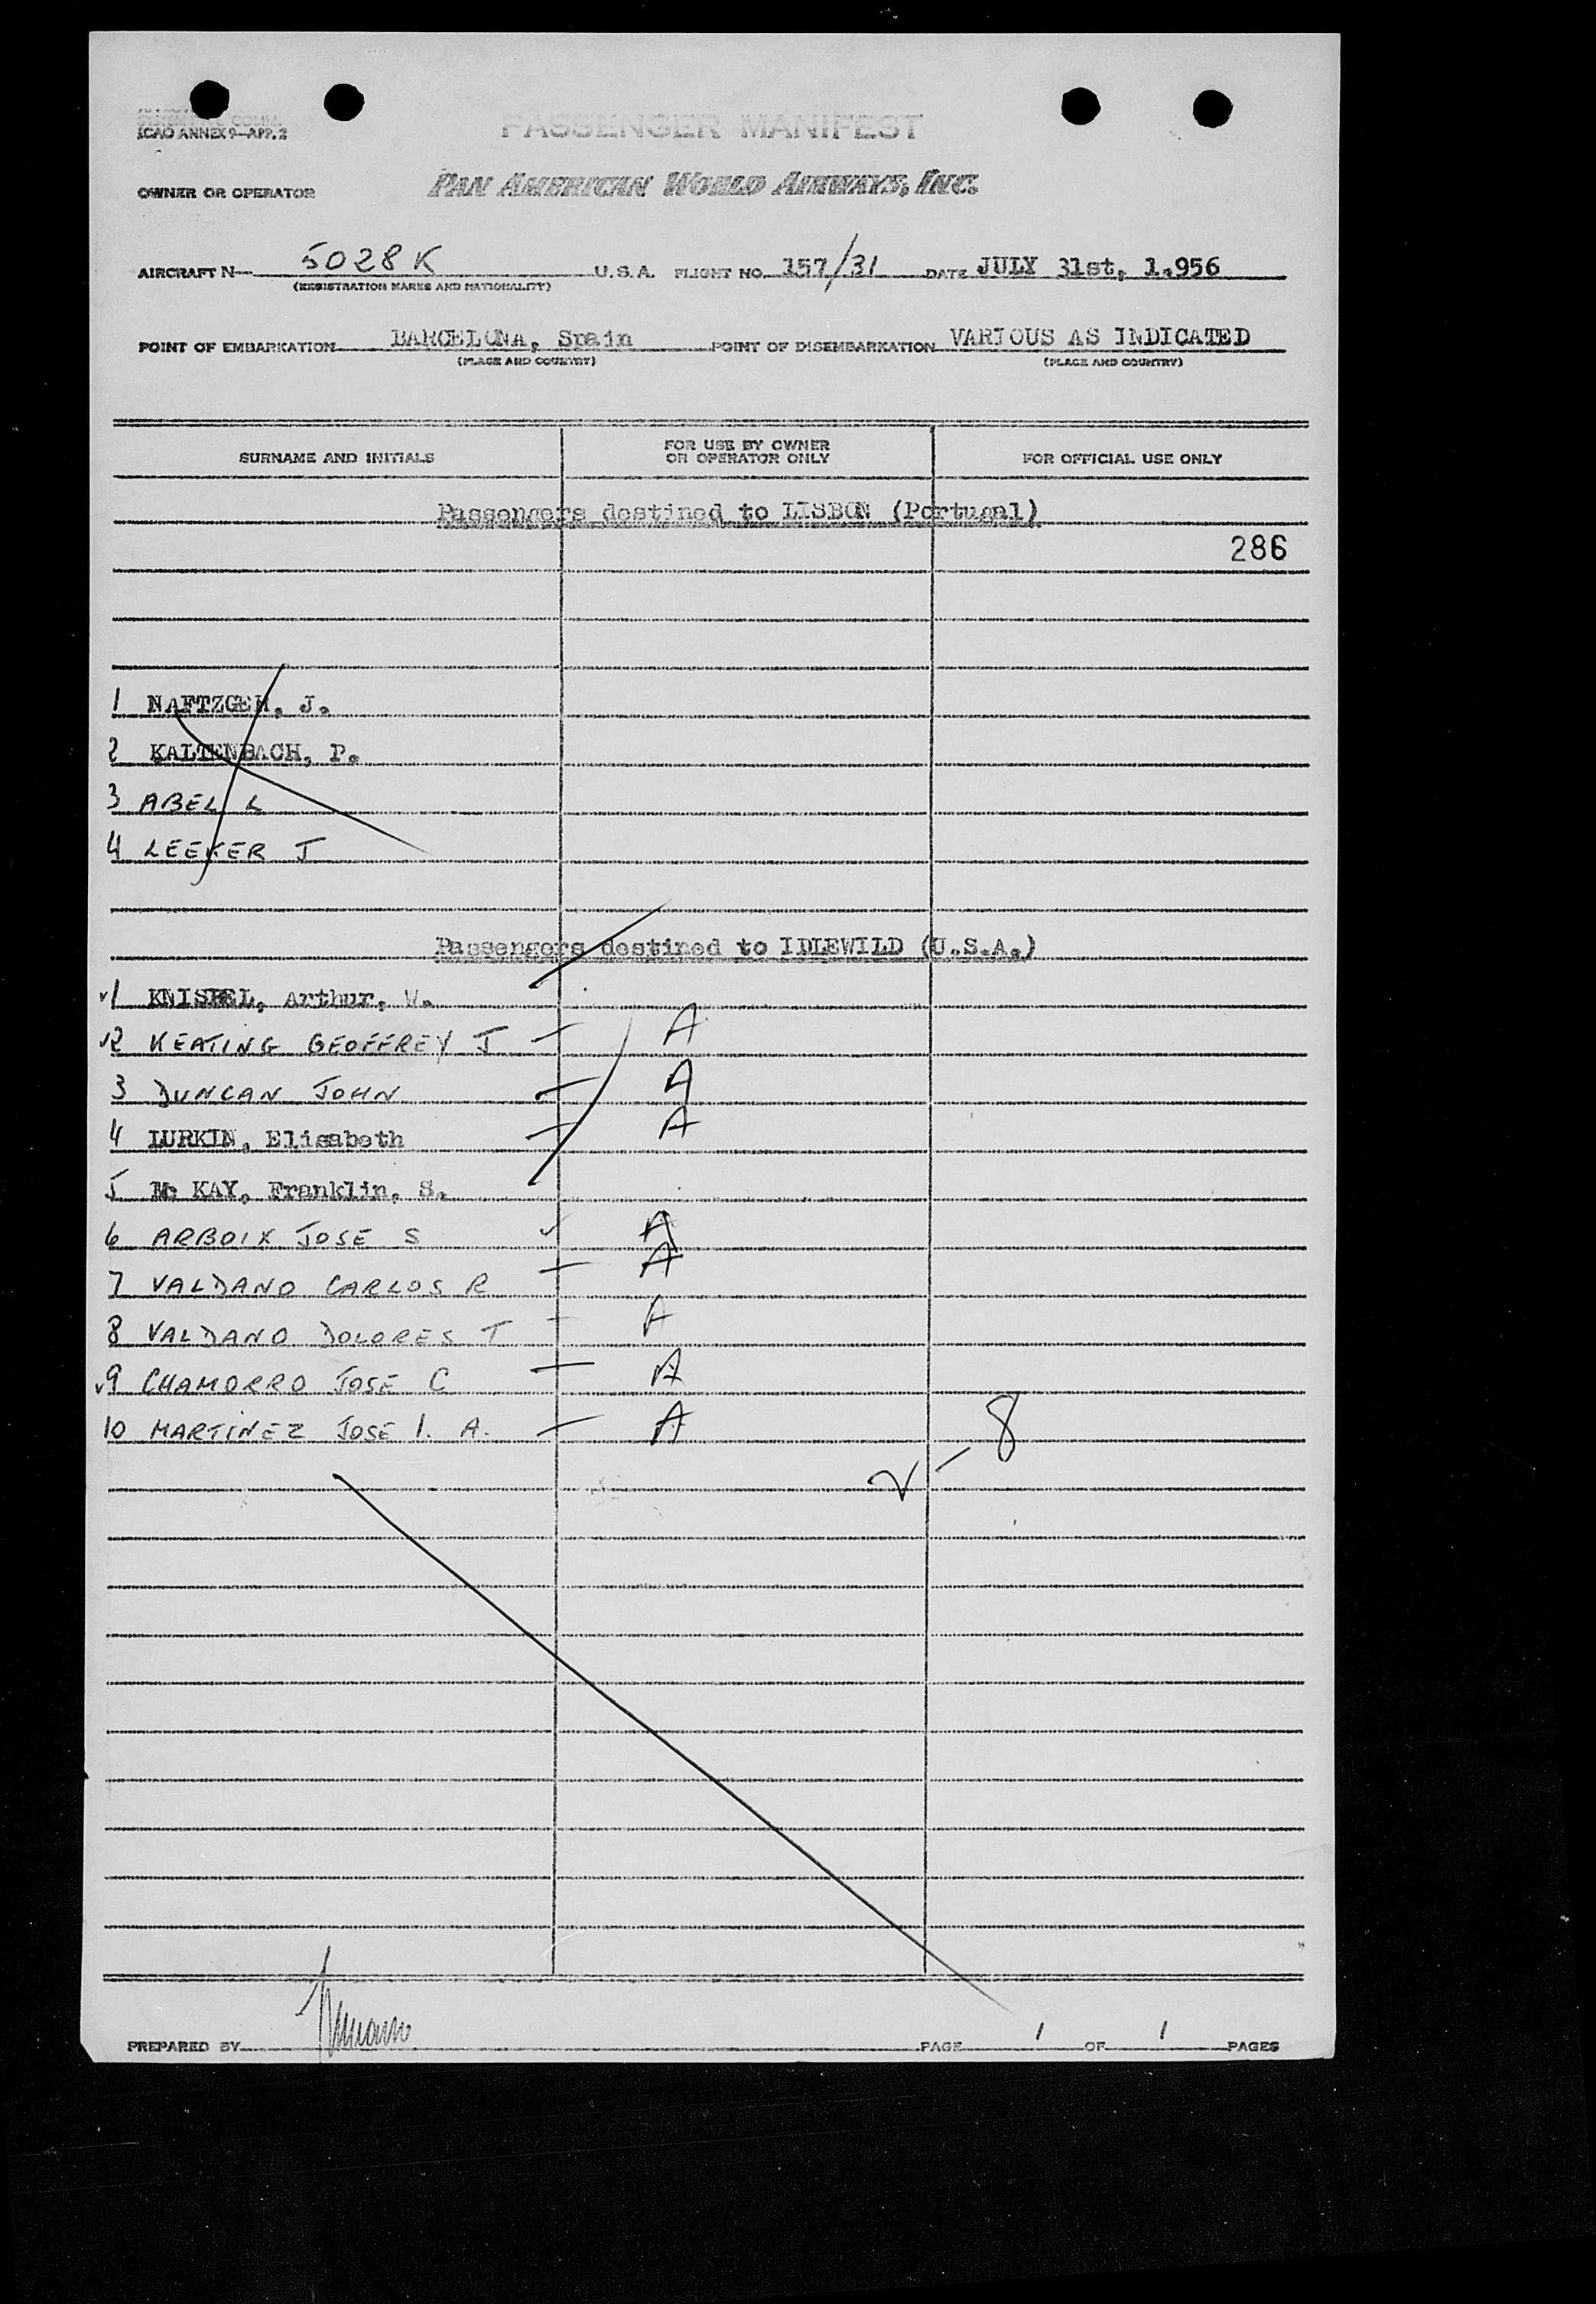 ICAO ANNEX 9—APP. 2
PASSENGER MANIFEST
OWNER OR OPERATOR PAN AMERICAN WORLD AIRWAYS, INC.
AIRCRAFT N— 5028K U.S.A. FLIGHT NO. 157/31 DATE JULY 31st, 1.956
(REGISTRATION MARKS AND NATIONALITY)
POINT OF EMBARKATION BARCELONA, Spain POINT OF DISEMBARKATION VARIOUS AS INDICATED
(PLACE AND COUNTRY) (PLACE AND COUNTRY)
SURNAME AND INITIALS FOR USE BY OWNER OR OPERATOR ONLY FOR OFFICIAL USE ONLY
Passengers destined to LISBON (Portugal)
286
1 NAFTZGER, J.
2 KALTENBACH, P.
3 ABEL L
4 LEEKER J
Passengers destined to IDLEWILD (U.S.A.)
1 KNISPEL, Arthur, W.
2 KEATING GEOFFREY J — A
3 DUNCAN JOHN — A
4 LURKIN, Elisabeth — A
5 Mc KAY, Franklin, S.
6 ARBOIX JOSE S ✓ A
7 VALDANO CARLOS R — A
8 VALDANO DOLORES T — A
9 CHAMORRO JOSE C — A
10 MARTINEZ JOSE I. A. — A
2 — 8
PREPARED BY PAGE 1 OF 1 PAGES